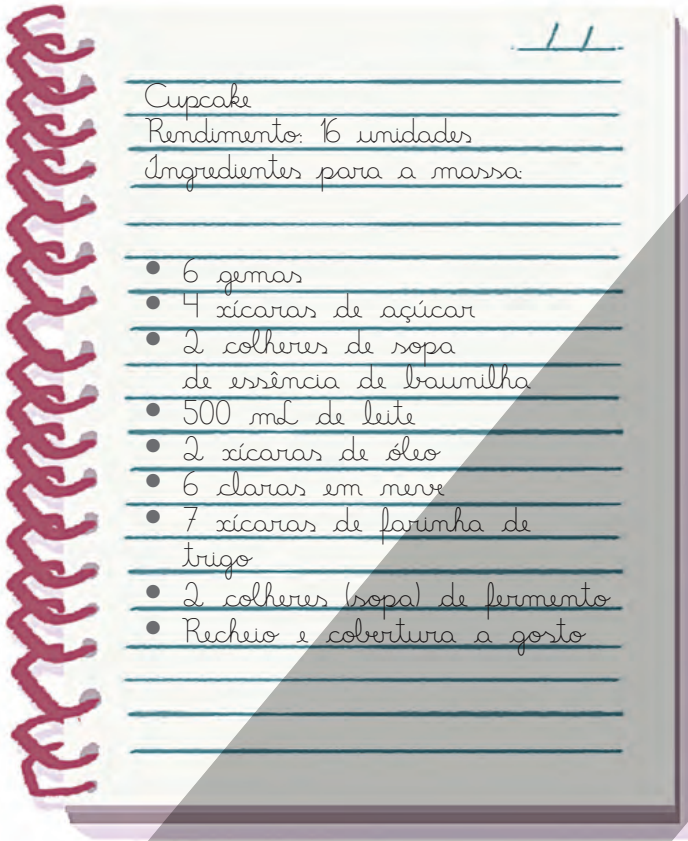 Cupcake
Rendimento: 16 unidades
Ingredientes para a massa:
• 6 gemas
• 4 xícaras de açúcar
• 2 colheres de sopa
de essência de baunilha
• 500 mL de leite
• 2 xícaras de óleo
• 6 claras em neve
• 7 xícaras de farinha de
trigo
• 2 colheres (sopa) de fermento
• Recheio e cobertura a gosto